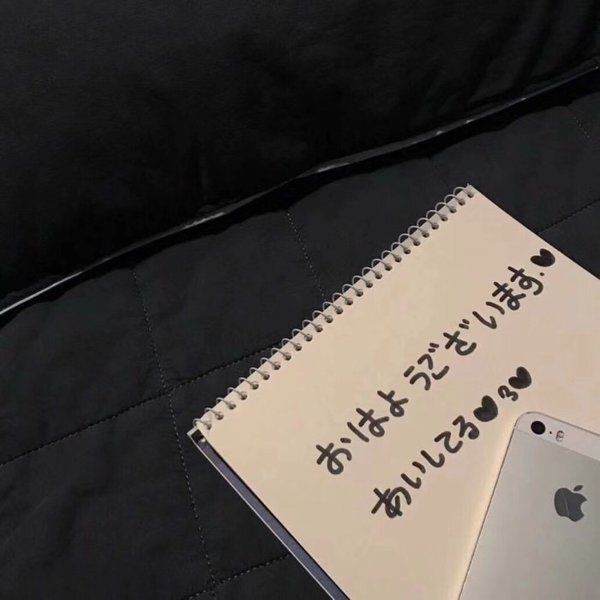 おはようございます.♥
あいしてる♥з♥